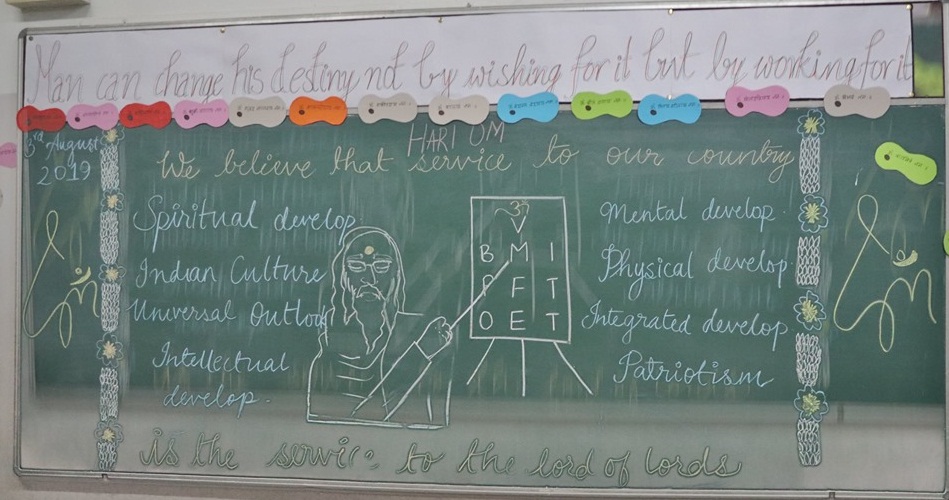 Man can change his destiny not by wishing for it but by working for it
3rd August
2019
HARI OM
We believe that service to our country
Spiritual develop.
Indian Culture
Universal Outlook
Intellectual
develop.
ॐ
B M I
O F T
O E T
Mental develop.
Physical develop.
Integrated develop.
Patriotism
is the service to the lord of lords